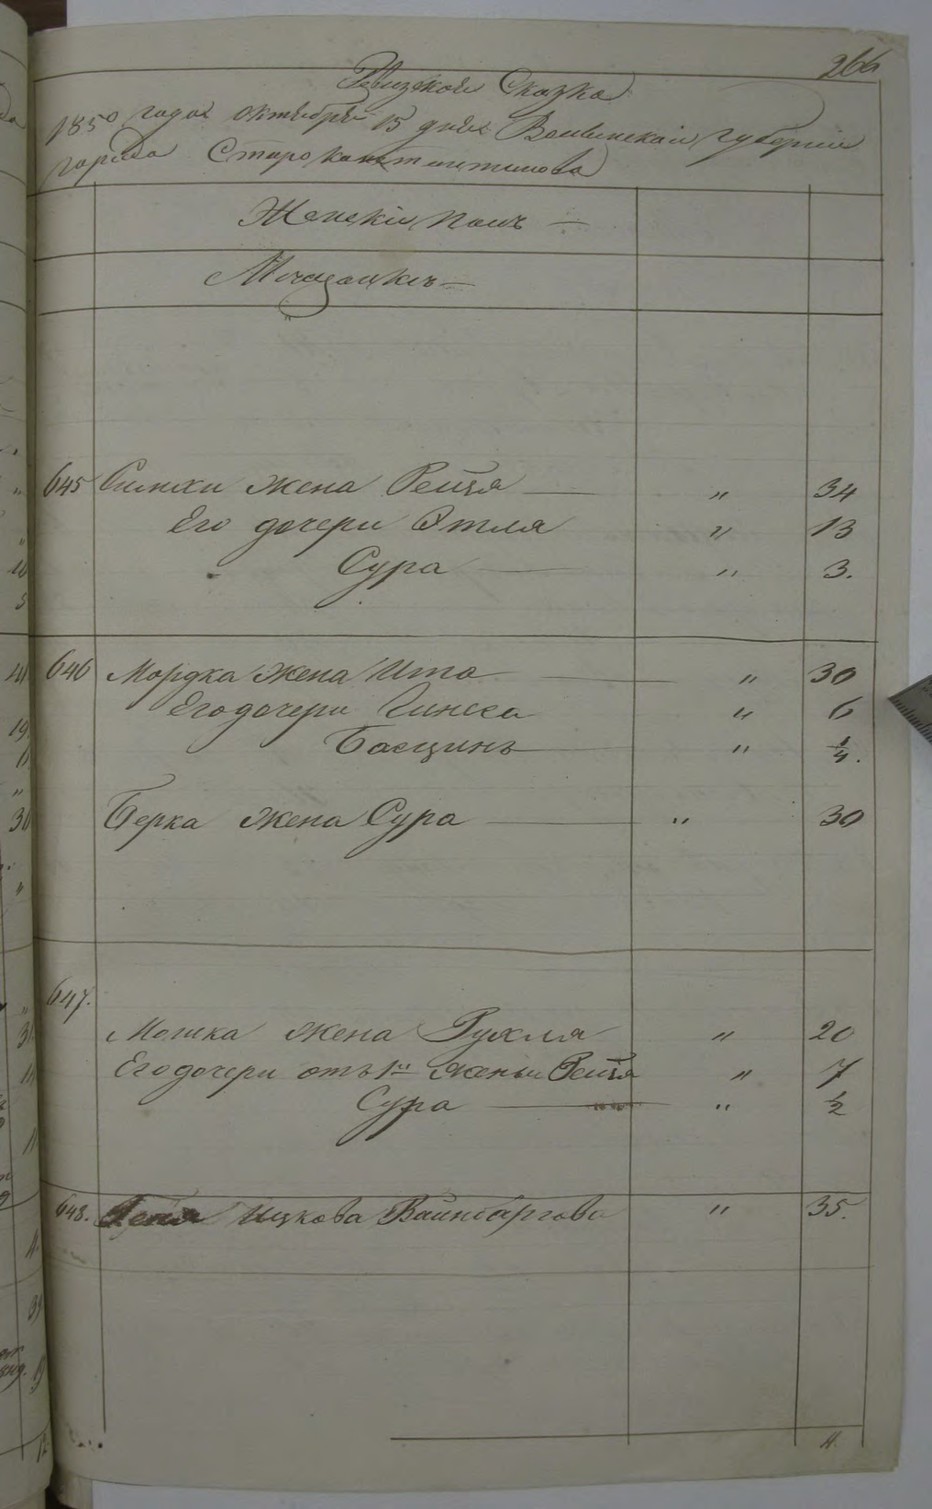 266
Ревизская Сказка
1850 года октября 15 дня Волынской Губернии
города Староконстантинова
Женскій полъ
Мещанкъ
645 Симхи жена Рейзя " 34
Его дочери Этля " 13
Сура " 3.
646 Мордка жена Ита " 30
Его дочери " 6
Басшинь " 1/4.
Берка жена Сура " 30
647.
Мошка жена Рухля " 20
Его дочери отъ 1й жены Рейзя " 7
Сура " 1/2
648. Ицкова Вайнбаргова " 35.
11.